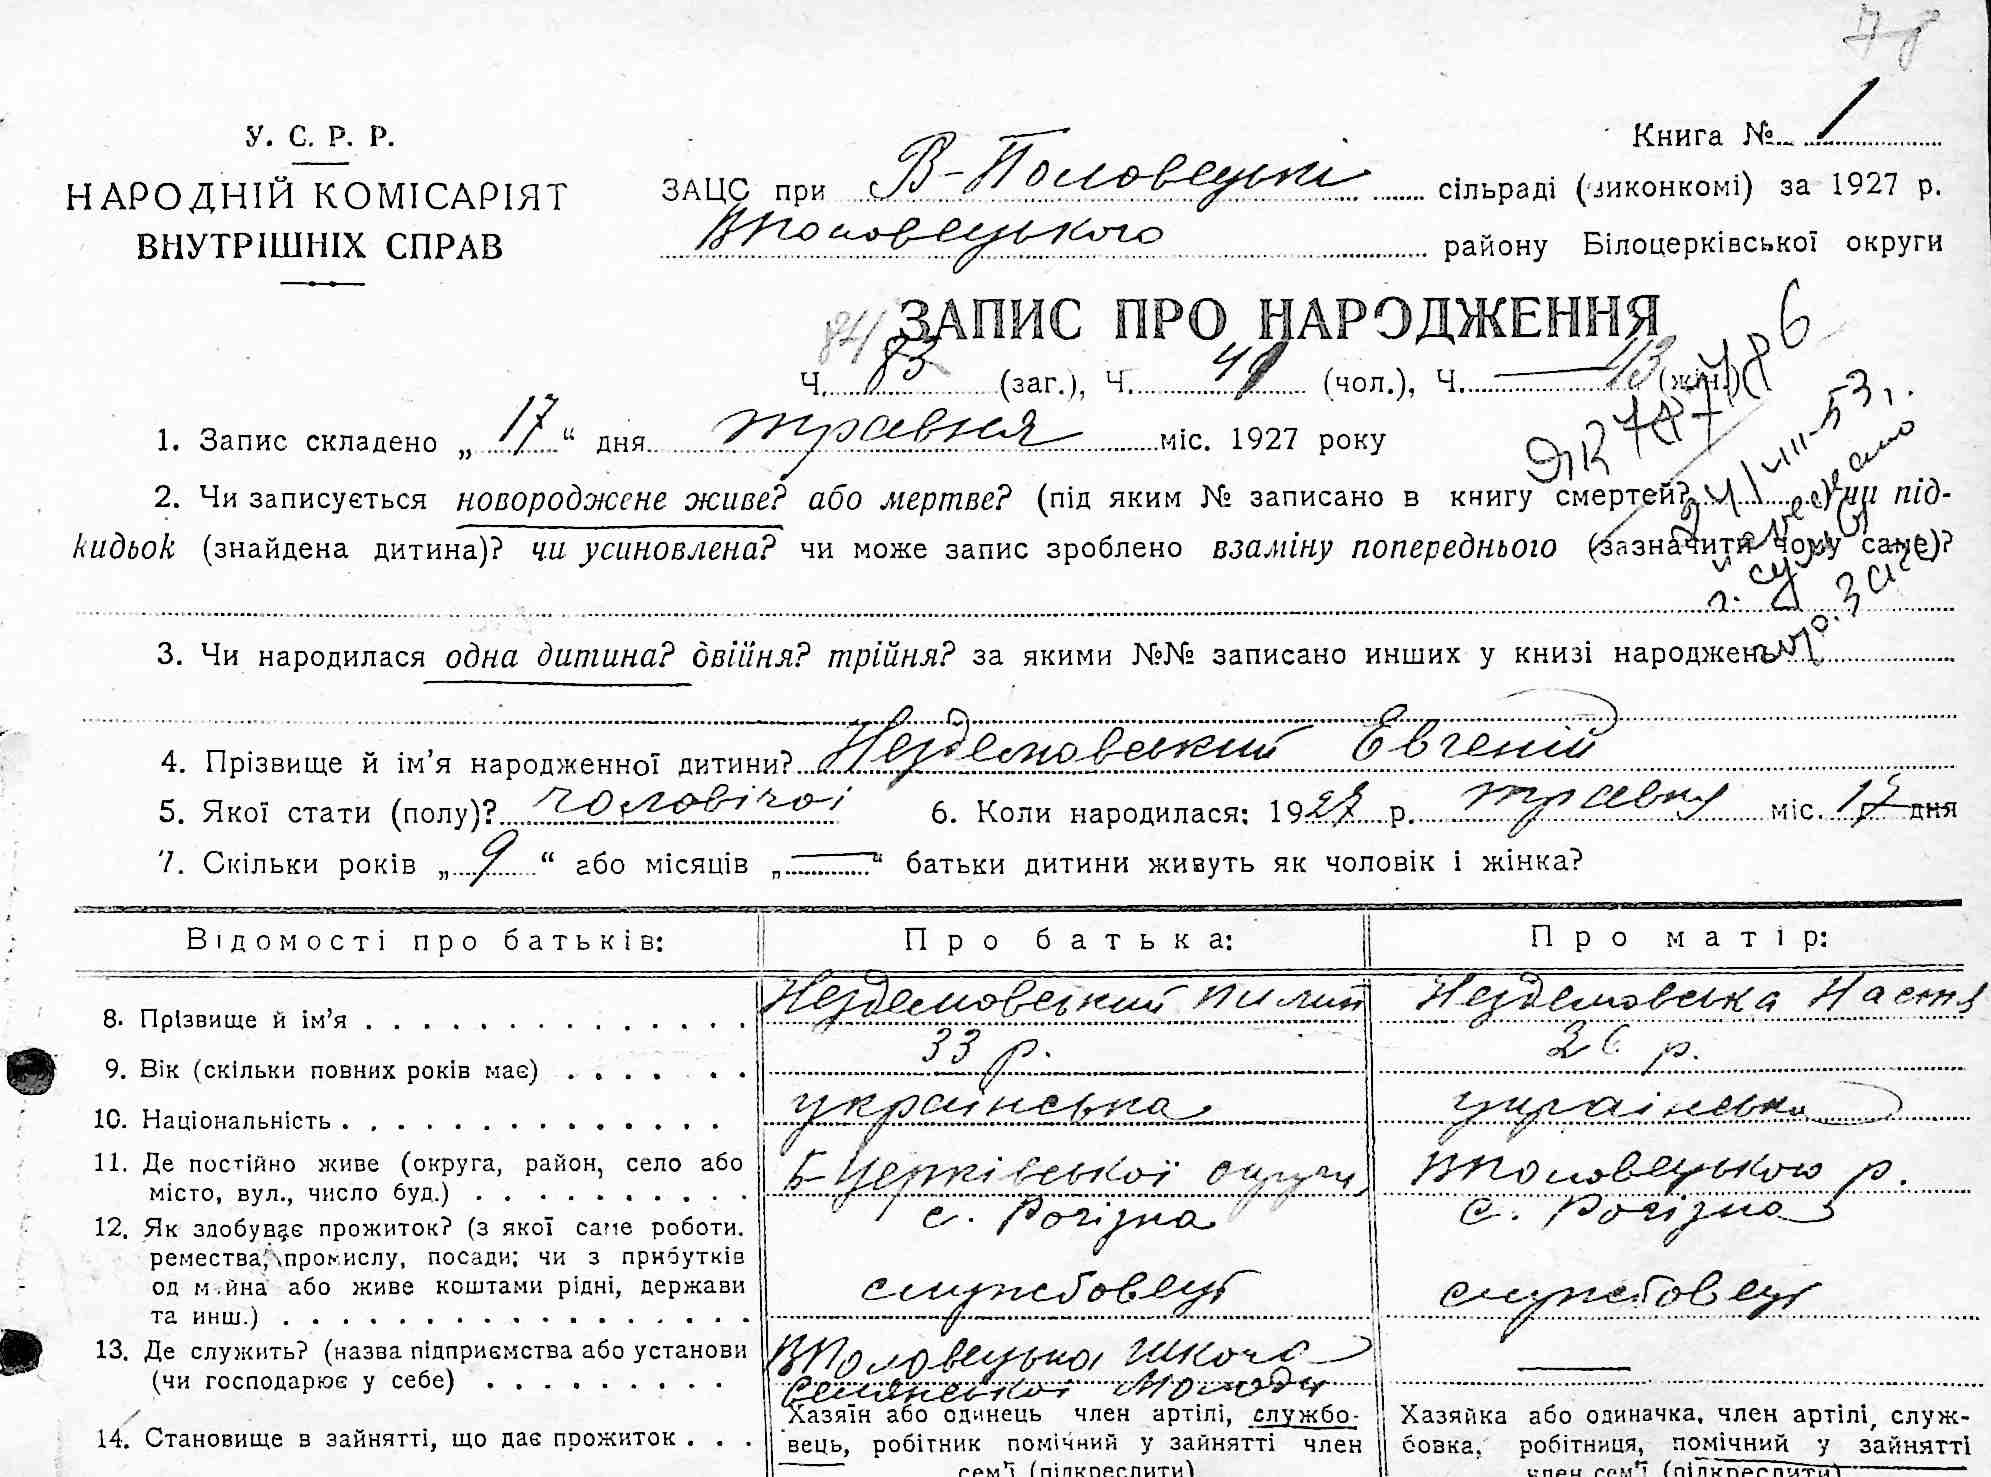 78
У. С. Р. Р.
НАРОДНІЙ КОМІСАРІЯТ
ВНУТРІШНІХ СПРАВ
Книга № 1
ЗАЦС при В-Половецькі сільраді (виконкомі) за 1927 р.
ВПоловецького району Білоцерківської округи
ЗАПИС ПРО НАРОДЖЕННЯ
84
Ч. 83 (заг.), Ч. 41 (чол.), Ч. — 43 (жін.)
1. Запис складено „17“ дня травня міс. 1927 року
2. Чи записується новороджене живе? або мертве? (під яким № записано в книгу смертей? ) чи під-
кидьок (знайдена дитина)? чи усиновлена? чи може запис зроблено взаміну попереднього (зазначити чому саме)?
3. Чи народилася одна дитина? двійня? трійня? за якими №№ записано инших у книзі народжень
4. Прізвище й ім’я народженної дитини? Нездемовський Евгеній
5. Якої стати (полу)? чоловічої 6. Коли народилася: 1927 р. травня міс. 17 дня
7. Скільки років „9“ або місяців „—“ батьки дитини живуть як чоловік і жінка?
Відомості про батьків: Про батька: Про матір:
8. Прізвище й ім’я Нездемовський Пилип Нездемовська Настя
9. Вік (скільки повних років має) 33 р. 26 р.
10. Національність українська українська
11. Де постійно живе (округа, район, село або Б-Церківської округи, ВПоловецького р.
місто, вул., число буд.) с. Рогізна с. Рогізна
12. Як здобуває прожиток? (з якої саме роботи.
ремества, промислу, посади; чи з прибутків
од майна або живе коштами рідні, держави службовець службовець
та инш.)
13. Де служить? (назва підприємства або установи ВПоловецька школа —
(чи господарює у себе) селянської молоди
14. Становище в зайнятті, що дає прожиток
Хазяїн або одинець член артілі, службо-
вець, робітник помічний у зайнятті член
сем’ї (підкреслити)
Хазяйка або одиначка, член артілі, служ-
бовка, робітниця, помічний у зайнятті
член сем’ї (підкреслити)